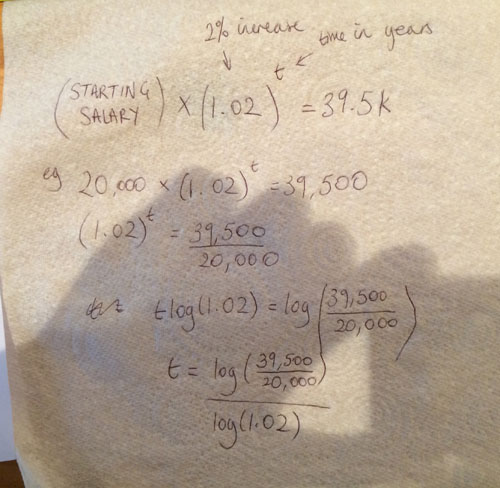 2% increase
time in years
(STARTING SALARY) × (1.02)^t = 39.5k
eg 20,000 × (1.02)^t = 39,500
(1.02)^t = 39,500/20,000
t log(1.02) = log(39,500/20,000)
t = log(39,500/20,000)/log(1.02)